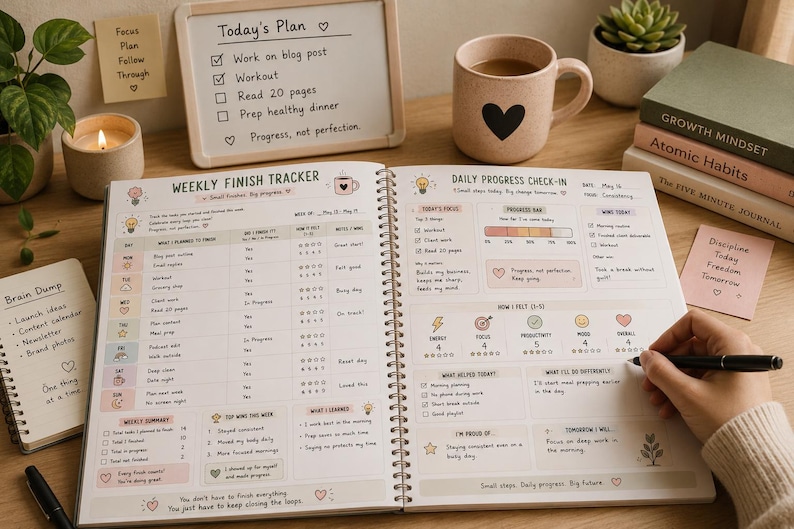 Focus
Plan
Follow
Through
Today's Plan
Work on blog post
Workout
Read 20 pages
Prep healthy dinner
Progress, not perfection.
GROWTH MINDSET
Atomic Habits
THE FIVE MINUTE JOURNAL
Discipline
Today
Freedom
Tomorrow
Brain Dump
• Launch ideas
• Content calendar
• Newsletter
• Brand photos
One thing
at a time.
WEEKLY FINISH TRACKER
Small finishes. Big progress.
Track the tasks you started and finished this week.
Celebrate every loop you close!
Progress, not perfection.
WEEK OF: May 13 - May 19
DAY WHAT I PLANNED TO FINISH DID I FINISH IT? HOW IT FELT NOTES / WINS
Yes / No / In Progress (1-5)
MON Blog post outline Yes Great start!
Email replies Yes
TUE Workout Yes Felt good
Grocery shop Yes
WED Client work In Progress Busy day
Read 20 pages Yes
THU Plan content Yes On track!
Meal prep Yes
FRI Podcast edit In Progress
Walk outside Yes
SAT Deep clean Yes Reset day
Date night Yes
SUN Plan next week Yes Loved this
No screen night Yes
WEEKLY SUMMARY
Total tasks I planned to finish: 14
Total I finished: 10
Total in progress: 2
Total not finished: 2
Every finish counts!
You're doing great.
TOP WINS THIS WEEK
1. Stayed consistent
2. Moved my body daily
3. More focused mornings
I showed up for myself
and made progress.
WHAT I LEARNED
• I work best in the morning
• Prep saves so much time
• Saying no protects my time
You don't have to finish everything.
You just have to keep closing the loops.
DAILY PROGRESS CHECK-IN
Small steps today. Big change tomorrow.
DATE: May 16
FOCUS: Consistency
TODAY'S FOCUS
Top 3 things:
Workout
Client work
Read 20 pages
Why it matters:
Builds my business,
keeps me sharp,
feeds my mind.
PROGRESS BAR
How far I've come today
0% 25% 50% 75% 100%
Progress, not perfection.
Keep going!
WINS TODAY
Morning routine
Finished client deliverable
Workout
Other win:
Took a break without
guilt!
HOW I FELT (1-5)
ENERGY FOCUS PRODUCTIVITY MOOD OVERALL
4 4 5 4 4
WHAT HELPED TODAY?
Morning planning
No phone during work
Short break outside
Good playlist
WHAT I'LL DO DIFFERENTLY
I'll start meal prepping earlier
in the day.
I'M PROUD OF...
Staying consistent even on a
busy day.
TOMORROW I WILL...
Focus on deep work in
the morning.
Small steps. Daily progress. Big future.